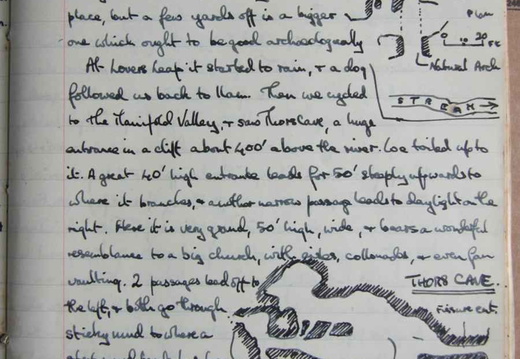 place, but a few yards off is a bigger
one which ought to be good archaeologically
Plan
0 10 20 FT
Natural Arch
At Lovers Leap it started to rain, & a dog
followed us back to Ilam. Then we cycled
to the Manifold Valley, & saw Thors Cave, a huge
entrance in a cliff about 400' above the river. We toiled up to
it. A great 40' high entrance leads for 50' steeply upwards to
where it branches, & another narrow passage leads to daylight on the
right. Here it is very grand, 50' high, wide, & bears a wonderful
resemblance to a big church, with aisles, collonades, & even fan
vaulting. 2 passages lead off to
the left, & both go through
sticky mud to where a
STREAM
THORS CAVE.
Fissure ent.